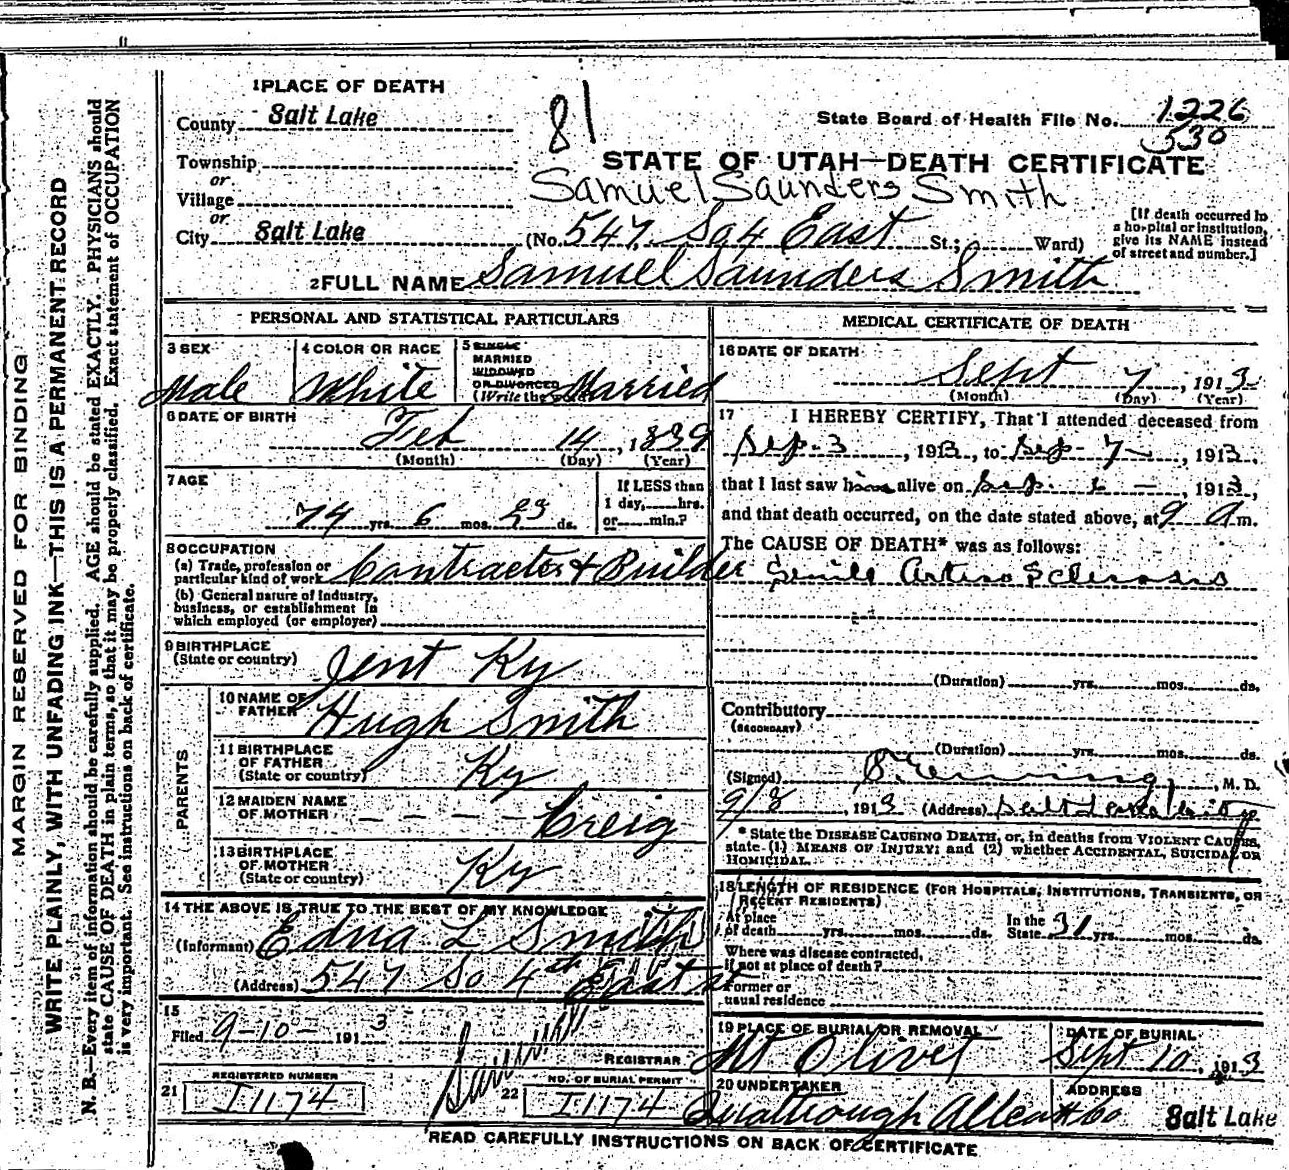 1 PLACE OF DEATH
County Salt Lake
Township
or
Village
or
City Salt Lake
81
State Board of Health File No. 1226
530
STATE OF UTAH—DEATH CERTIFICATE
Samuel Saunders Smith
(No. 547 So 4 East St.; Ward)
[If death occurred in a hospital or institution, give its NAME instead of street and number.]
2 FULL NAME Samuel Saunders Smith
PERSONAL AND STATISTICAL PARTICULARS
3 SEX
Male
4 COLOR OR RACE
White
5 SINGLE
MARRIED
WIDOWED
OR DIVORCED
(Write the word) Married
6 DATE OF BIRTH
Feb 14, 1839
(Month) (Day) (Year)
7 AGE
74 yrs. 6 mos. 23 ds.
If LESS than
1 day, hrs.
or min.?
8 OCCUPATION
(a) Trade, profession or
particular kind of work Contractor & Builder
(b) General nature of Industry,
business, or establishment in
which employed (or employer)
9 BIRTHPLACE
(State or country) Ky
PARENTS
10 NAME OF
FATHER Hugh Smith
11 BIRTHPLACE
OF FATHER
(State or country) Ky
12 MAIDEN NAME
OF MOTHER – – – – Creig
13 BIRTHPLACE
OF MOTHER
(State or country) Ky
14 THE ABOVE IS TRUE TO THE BEST OF MY KNOWLEDGE
(Informant) Edna L Smith
(Address) 547 So 4th East st
15
Filed 9-10- 1913
REGISTRAR
21 REGISTERED NUMBER
I1174
22 NO. OF BURIAL PERMIT
I1174
MEDICAL CERTIFICATE OF DEATH
16 DATE OF DEATH
Sept 7, 1913
(Month) (Day) (Year)
17 I HEREBY CERTIFY, That I attended deceased from
Sep. 3, 1913, to Sep- 7-, 1913,
that I last saw him alive on Sep. -, 1913,
and that death occurred, on the date stated above, at 9 a m.
The CAUSE OF DEATH* was as follows:
Senile Arterio Sclerosis
(Duration) yrs. mos. ds.
Contributory
(SECONDARY)
(Duration) yrs. mos. ds.
(Signed) , M. D.
9/8, 1913 (Address) Salt Lake City
* State the DISEASE CAUSING DEATH, or, in deaths from VIOLENT CAUSES,
state (1) MEANS OF INJURY; and (2) whether ACCIDENTAL, SUICIDAL OR
HOMICIDAL.
18 LENGTH OF RESIDENCE (FOR HOSPITALS, INSTITUTIONS, TRANSIENTS, OR
RECENT RESIDENTS)
At place
of death yrs. mos. ds.
In the
State 31 yrs. mos. ds.
Where was disease contracted,
if not at place of death?
Former or
usual residence
19 PLACE OF BURIAL OR REMOVAL
Mt Olivet
DATE OF BURIAL
Sept 10, 1913
20 UNDERTAKER
ADDRESS
Salt Lake
READ CAREFULLY INSTRUCTIONS ON BACK OF CERTIFICATE
MARGIN RESERVED FOR BINDING
WRITE PLAINLY, WITH UNFADING INK—THIS IS A PERMANENT RECORD
N. B.—Every item of information should be carefully supplied. AGE should be stated EXACTLY. PHYSICIANS should
state CAUSE OF DEATH in plain terms, so that it may be properly classified. Exact statement of OCCUPATION
is very important. See instructions on back of certificate.